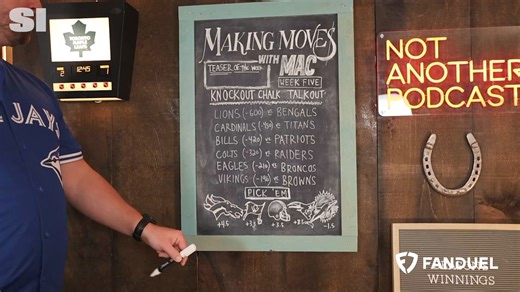 SI
TORONTO
MAPLE
LEAFS
2 12:45 7
JAYS
MAKING MOVES
WITH MAC
TEASER OF THE WEEK
WEEK FIVE
KNOCKOUT CHALK TALKOUT
LIONS (-600) @ BENGALS
CARDINALS @ TITANS
BILLS (-420) @ PATRIOTS
COLTS (-320) @ RAIDERS
EAGLES (-210) @ BRONCOS
VIKINGS (-190) @ BROWNS
PICK 'EM
+4.5 +3.5 -1.5
NOT
ANOTHER
PODCAST
FANDUEL
WINNINGS